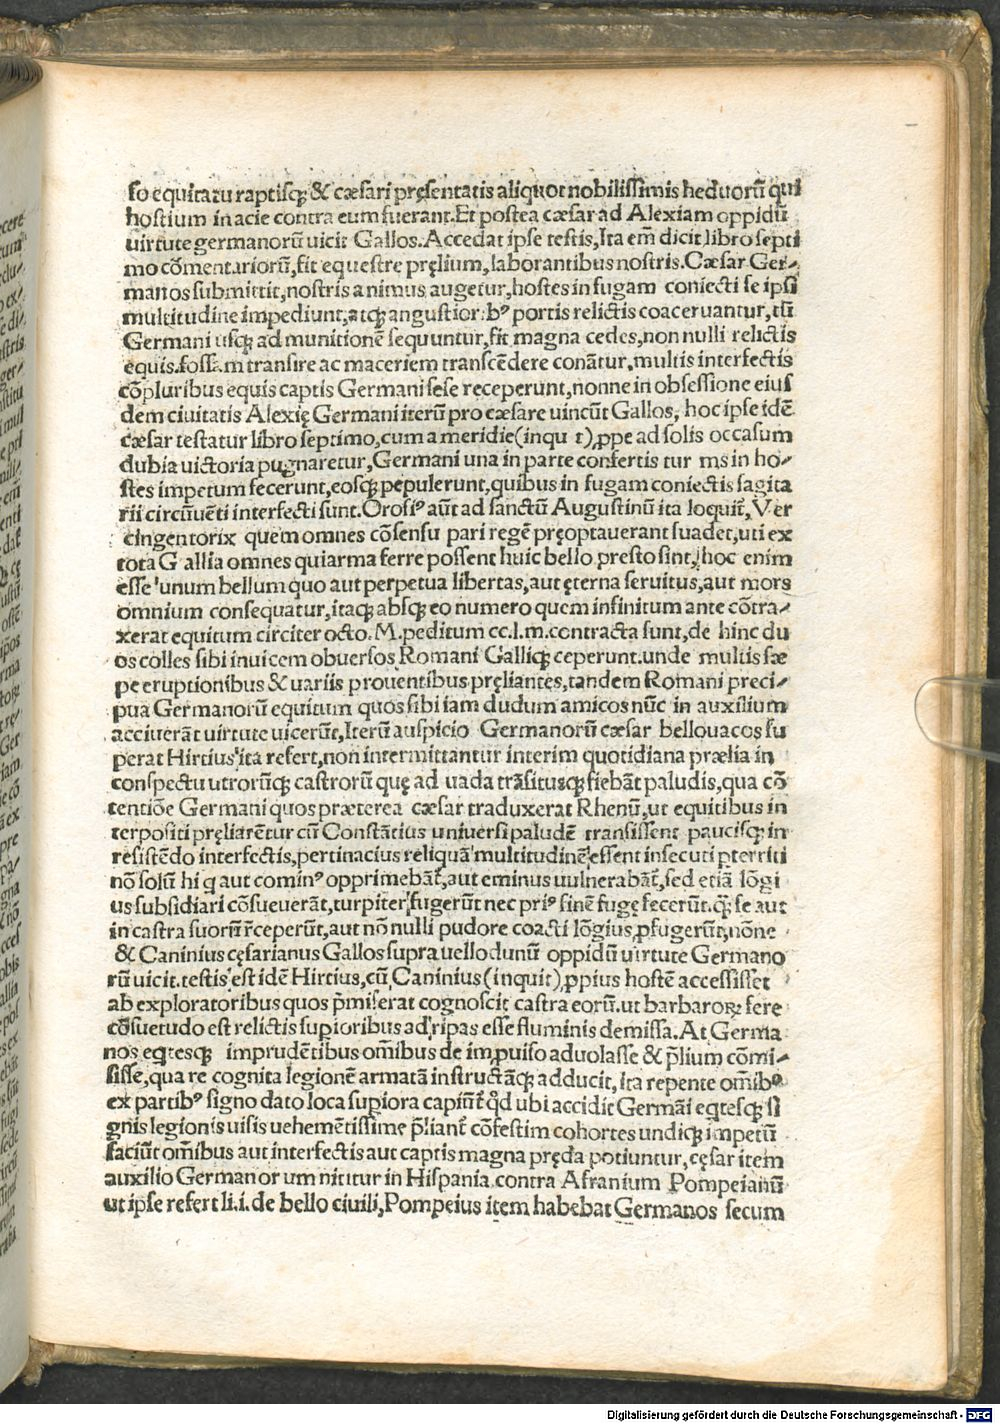 so equitatu raptisq; & cæsari pręsentatis aliquot nobilissimis heduorū qui
hostium in acie contra eum fuerant. Et postea cæsar ad Alexiam oppidū
uirtute germanorū uicit Gallos. Accedat ipse testis, Ita em̄ dicit libro septi
mo cōmentariorū, fit equestre pręlium, laborantibus nostris. Cæsar Ger⸗
manos submittit, nostris animus augetur, hostes in fugam coniecti se ipsi
multitudine impediunt, atq; angustioribꝰ portis relictis coaceruantur, tū
Germani usq; ad munitionē sequuntur, fit magna cedes, non nulli relictis
equis fossam transire ac maceriem transcēdere conātur, multis interfectis
cōpluribus equis captis Germani sese receperunt, nonne in obsessione eius
dem ciuitatis Alexię Germani iterū pro cæsare uincūt Gallos, hoc ipse idē
cæsar testatur libro septimo, cum a meridie (inqu t) ꝓpe ad solis occasum
dubia uictoria pugnaretur, Germani una in parte confertis tur ms in ho⸗
stes impetum fecerunt, eosq; pepulerunt, quibus in fugam coniectis sagita
rii circūuēti interfecti sunt. Orosiꝰ aūt ad sanctū Augustinū ita loquit̄, Ver
cingentorix quem omnes cōsensu pari regē pręoptauerant suadet, uti ex
tota Gallia omnes qui arma ferre possent huic bello presto sint, hoc enim
esse unum bellum quo aut perpetua libertas, aut ęterna seruitus, aut mors
omnium consequatur, itaq; absq; eo numero quem infinitum ante cōtra⸗
xerat equitum circiter octo. M. peditum cc.l.m. contracta sunt, de hinc du
os colles sibi inuicem obuersos Romani Galliq; ceperunt. unde multis sæ
pe eruptionibus & uariis prouentibus pręliantes, tandem Romani preci⸗
pua Germanorū equitum quos sibi iam dudum amicos nūc in auxilium
acciuerāt uirtute uicerūt, Iterū auspicio Germanorū cæsar bellouacos su
perat Hirtius ita refert, non intermittantur interim quotidiana prælia in
conspectu utrorūq; castrorū quę ad uada trāsitusq; fiebāt paludis, qua cō
tentiōe Germani quos præterea cæsar traduxerat Rhenū, ut equitibus in
terpositi pręliarētur cū Constātius uniuersi paludē transissent paucisq; in
resistēdo interfectis, pertinacius reliquā multitudinē essent insecuti pterriti
nō solū hi q aut cominꝰ opprimebāt̄, aut eminus uulnerabāt̄, sed etiā lōgi
us subsidiari cōsueuerāt, turpiter fugerūt nec priꝰ finē fugę fecerūt. q̄ se aut
in castra suorū r̄ceperūt, aut nō nulli pudore coacti lōgius ꝓfugerūt, nōne
& Caninius cęsarianus Gallos supra uellodunū oppidū uirtute Germano
rū uicit. testis est idē Hirtius, cū Caninius (inquit) ꝓpius hostē accessisset
ab exploratoribus quos p̄miserat cognoscit castra eorū. ut barbaroꝝ fere
cōsuetudo est relictis supioribus ad ripas esse fluminis demissa. At Germa
nos eq̄tesq; imprudētibus om̄ibus de improuiso aduolasse & p̄lium cōmi⸗
sisse, qua re cognita legionē armatā instructāq; adducit, ita repente om̄ibꝰ
ex partibꝰ signo dato loca supiora capiūt̄ qd̄ ubi accidit Germāi eq̄tesq; si
gnis legionis uisis uehemētissime p̄liant̄ cōfestim cohortes undiq; impetū
faciūt om̄ibus aut interfectis aut captis magna pręda potiuntur, cęsar item
auxilio Germanorum nititur in Hispania contra Afranium Pompeianū
ut ipse refert li.i. de bello ciuili, Pompeius item habebat Germanos secum
Digitalisierung gefördert durch die Deutsche Forschungsgemeinschaft - DFG